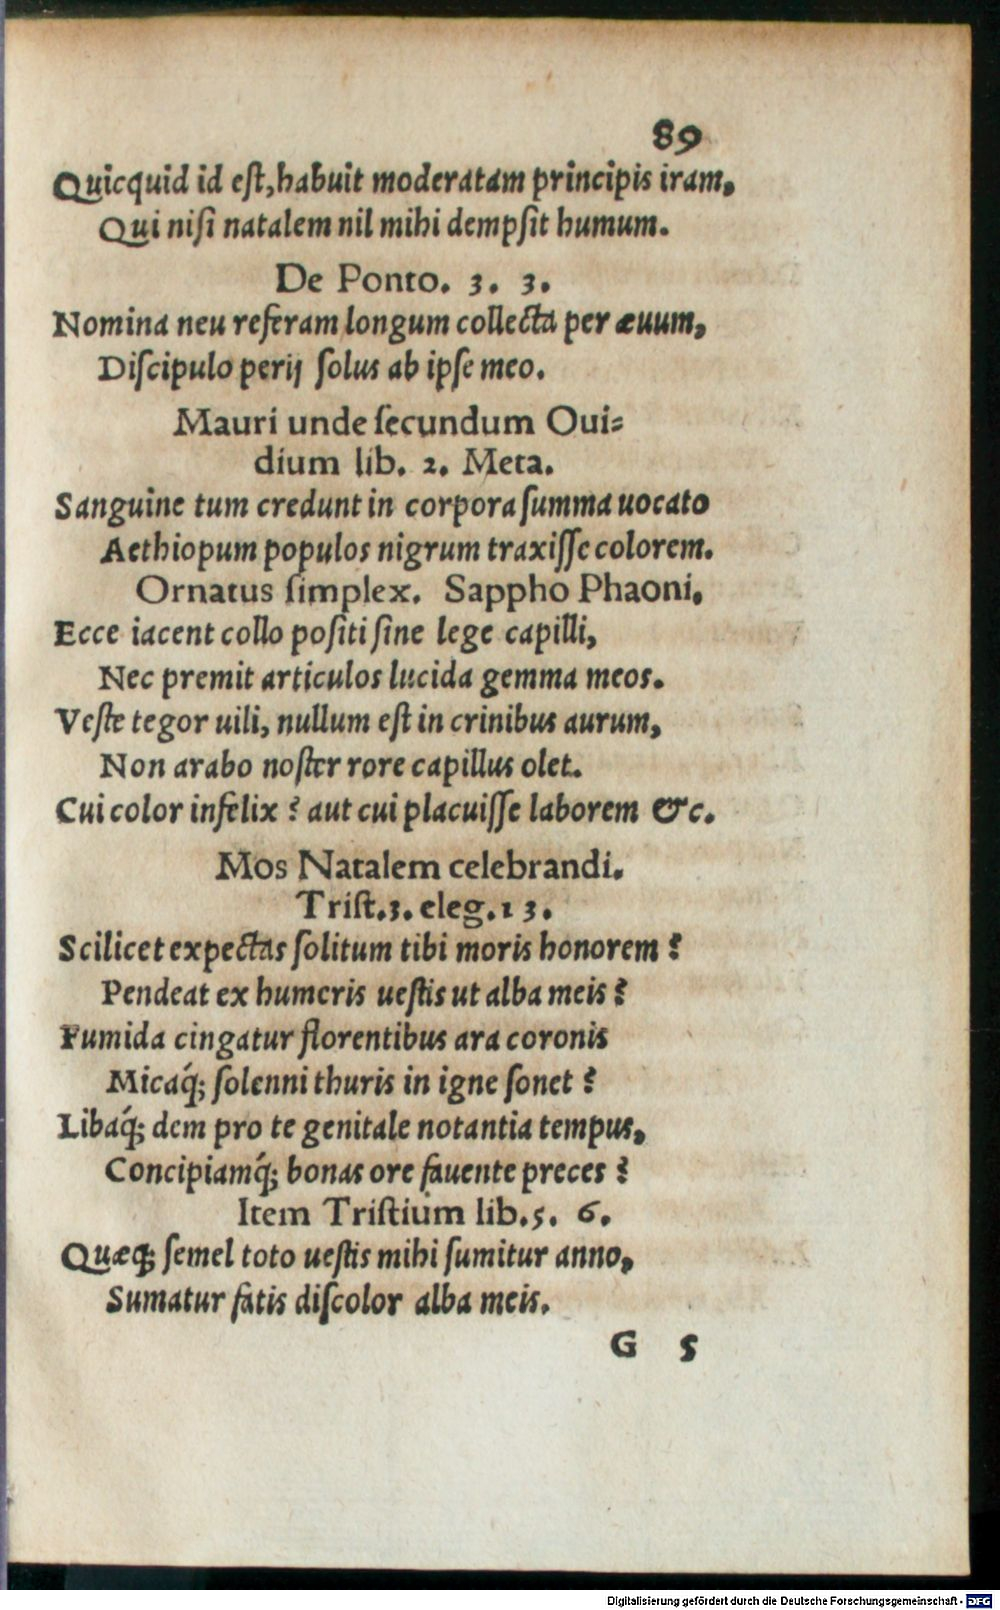 89
Quicquid id est, habuit moderatam principis iram,
Qui nisi natalem nil mihi dempsit humum.
De Ponto. 3. 3.
Nomina neu referam longum collecta per æuum,
Discipulo perij solus ab ipse meo.
Mauri unde secundum Oui-
dium lib. 2. Meta.
Sanguine tum credunt in corpora summa uocato
Aethiopum populos nigrum traxisse colorem.
Ornatus simplex. Sappho Phaoni,
Ecce iacent collo positi sine lege capilli,
Nec premit articulos lucida gemma meos.
Veste tegor uili, nullum est in crinibus aurum,
Non arabo noster rore capillus olet.
Cui color infelix? aut cui placuisse laborem &c.
Mos Natalem celebrandi.
Trist.3. eleg.13.
Scilicet expectas solitum tibi moris honorem?
Pendeat ex humeris uestis ut alba meis?
Fumida cingatur florentibus ara coronis
Micaq́; solenni thuris in igne sonet?
Libaq́; dem pro te genitale notantia tempus,
Concipiamq́; bonas ore fauente preces?
Item Tristium lib.5. 6.
Quæq; semel toto uestis mihi sumitur anno,
Sumatur fatis discolor alba meis.
G 5
Digitalisierung gefördert durch die Deutsche Forschungsgemeinschaft - DFG